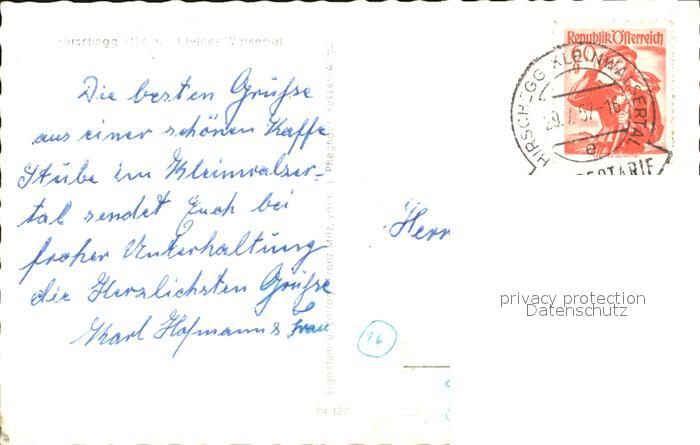 Hirschegg
Kleines Walsertal
Die besten Grüße
aus einer schönen Kaffe
Stube im Kleinwalser-
tal sendet Euch bei
froher Unterhaltung
die Herzlichsten Grüße
Karl Hofmann & Frau
Eigentum u. Verlag Franz Milz, vorm. L. Pfleghofer, Füssen
24-122
Republik Österreich
60
HIRSCHEGG KLEINWALSERTAL
29.7.57-16
e
Herrn
16
privacy protection
Datenschutz